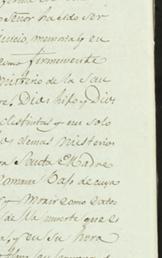 o Señor ha sido ser
juicio, memoria, y en
como firmemente
misterio de la San
re, Dios hijo, y Dios
distintas y un solo
los demas misterios
ra Santa Madre
romana bajo de cuya
y morir como catol
de la muerte que es
a, y su hora